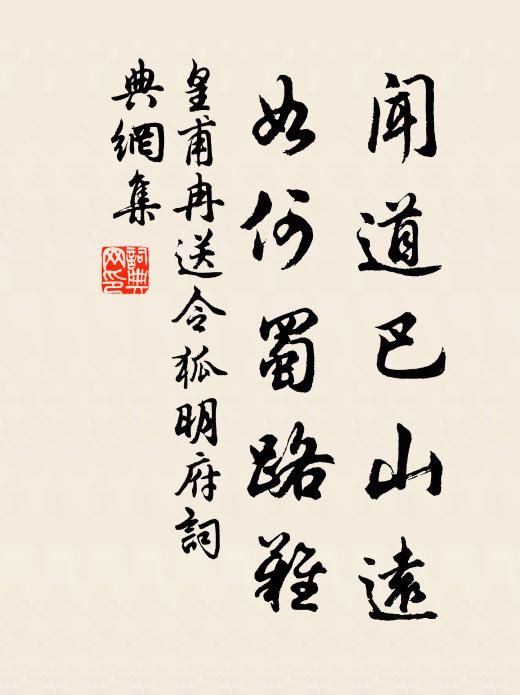 聞道巴山遠
如何蜀路難
皇甫冉送令狐明府詞
典網集
詞典
网印